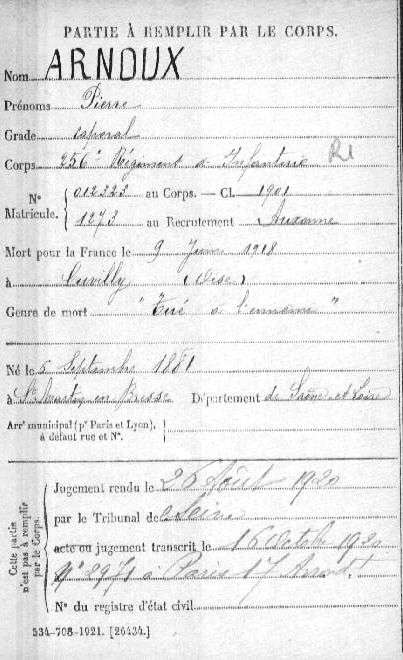 PARTIE À REMPLIR PAR LE CORPS.
Nom ARNOUX
Prénoms Pierre
Grade caporal
Corps 256e Régiment d'Infanterie RI
N° Matricule. 012323 au Corps. — Cl. 1901
1273 au Recrutement Auxonne
Mort pour la France le 9 Juin 1918
à Cuvilly (Oise)
Genre de mort "Tué à l'ennemi"
Né le 5 Septembre 1881
à St Martin en Bresse Département de Saône et Loire
Arrt municipal (pr Paris et Lyon),
à défaut rue et N°.
Cette partie
n'est pas à remplir
par le Corps.
Jugement rendu le 26 Août 1920
par le Tribunal de Seine
acte ou jugement transcrit le 16 Octobre 1920
N° 8971 à Paris 17 Arrondt
N° du registre d'état civil
534-708-1921. [26434.]